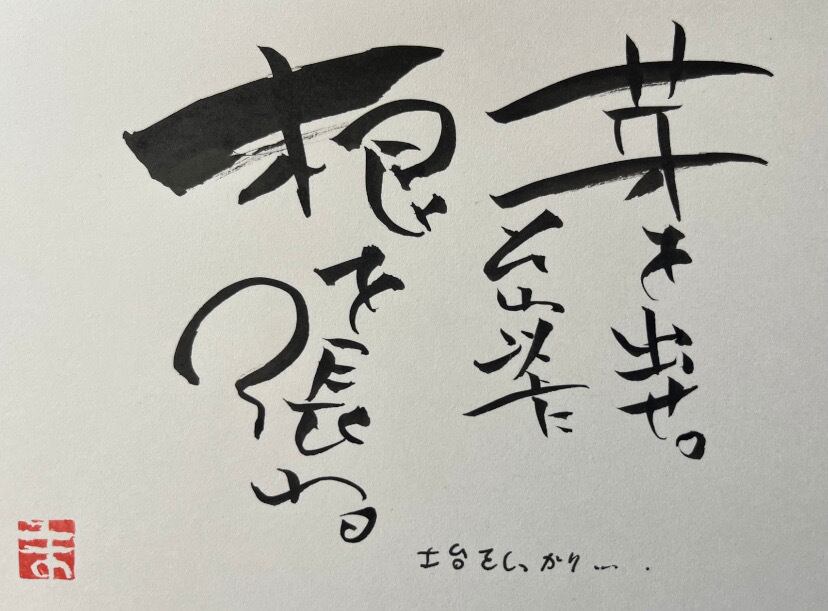 芽を出せ。
と云う前に
根を張れ。
土台をしっかり.... .